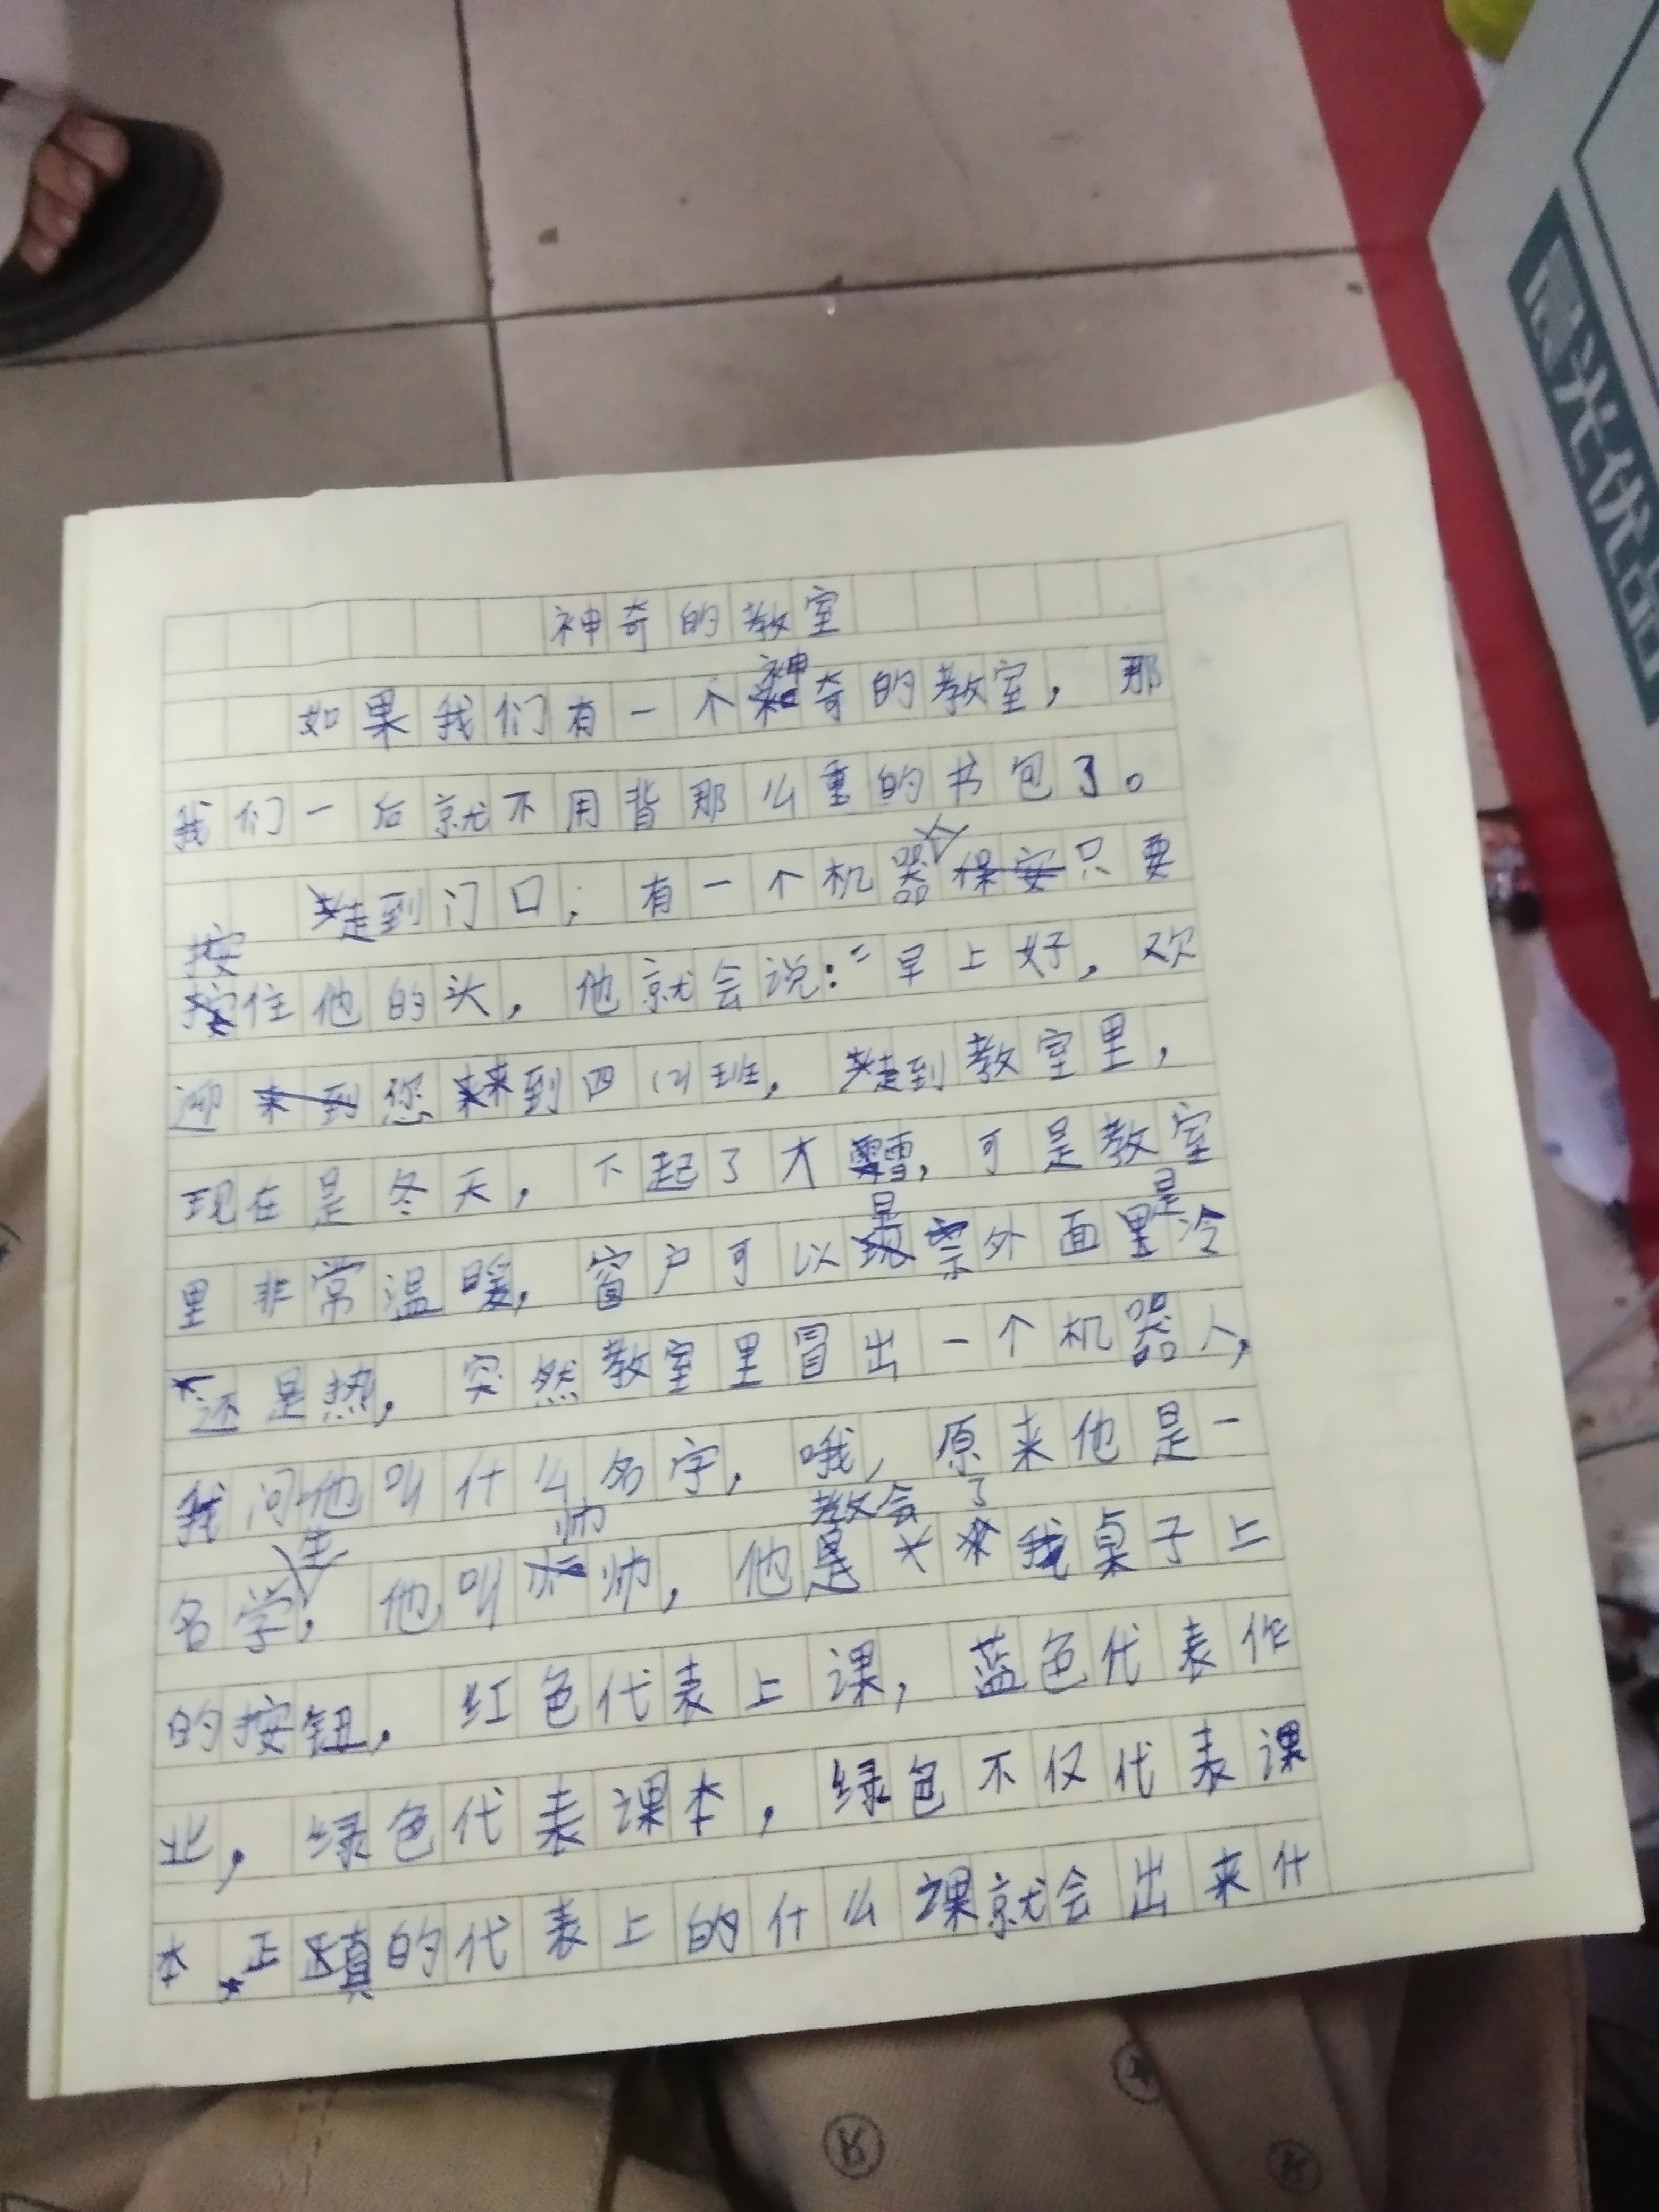 神奇的教室
如果我们有一个神奇的教室，那
我们一后就不用背那么重的书包了。
走到门口，有一个机器人只要
按住他的头，他就会说：“早上好，欢
迎您来到四(2)班，走到教室里，
现在是冬天，下起了大雪，可是教室
里非常温暖，窗户可以显示外面是冷
还是热，突然教室里冒出一个机器人，
我问他叫什么名字，哦，原来他是一
名学生，他叫帅帅，他教会了我桌子上
的按钮，红色代表上课，蓝色代表作
业，绿色代表课本，绿色不仅代表课
本，正真的代表上的什么课就会出来什
优品